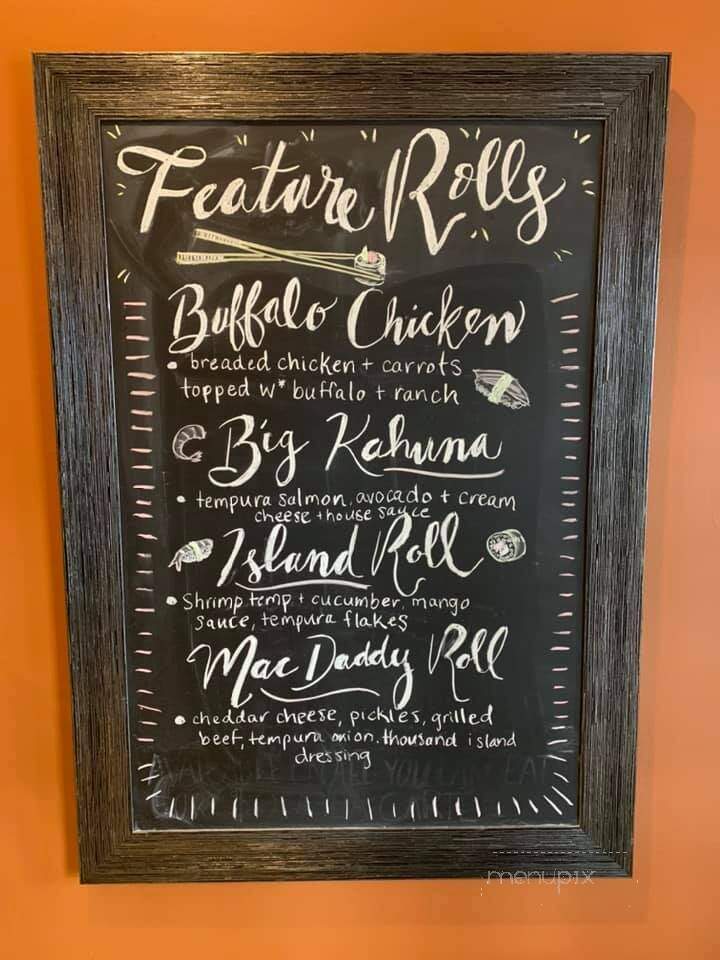 Feature Rolls
Buffalo Chicken
• breaded chicken + carrots
topped w* buffalo + ranch
Big Kahuna
• tempura salmon, avocado + cream
cheese + house sauce
Island Roll
• Shrimp temp + cucumber, mango
sauce, tempura flakes
Mac Daddy Roll
• cheddar cheese, pickles, grilled
beef, tempura onion, thousand island
dressing
ALL YOU CAN EAT
menupix